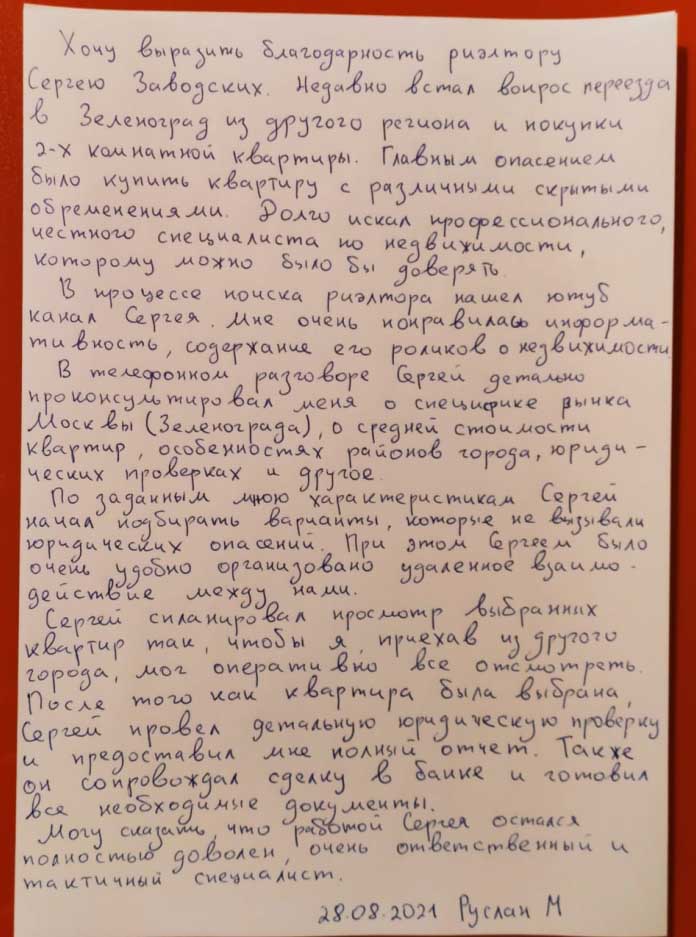 Хочу выразить благодарность риэлтору
Сергею Заводских. Недавно встал вопрос переезда
в Зеленоград из другого региона и покупки
2-х комнатной квартиры. Главным опасением
было купить квартиру с различными скрытыми
обременениями. Долго искал профессионального,
честного специалиста по недвижимости,
которому можно было бы доверять.
В процессе поиска риэлтора нашел ютуб
канал Сергея. Мне очень понравилась информа-
тивность, содержание его роликов о недвижимости.
В телефонном разговоре Сергей детально
проконсультировал меня о специфике рынка
Москвы (Зеленограда), о средней стоимости
квартир, особенностях районов города, юриди-
ческих проверках и другое.
По заданным мною характеристикам Сергей
начал подбирать варианты, которые не вызывали
юридических опасений. При этом Сергеем было
очень удобно организовано удаленное взаимо-
действие между нами.
Сергей спланировал просмотр выбранных
квартир так, чтобы я, приехав из другого
города, мог оперативно все отсмотреть.
После того как квартира была выбрана,
Сергей провел детальную юридическую проверку
и предоставил мне полный отчет. Также
он сопровождал сделку в банке и готовил
все необходимые документы.
Могу сказать, что работой Сергея остался
полностью доволен, очень ответственный и
тактичный специалист.
28.08.2021 Руслан М